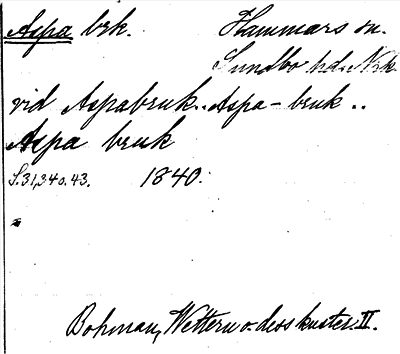 Aspa brk. Hammars sn.
Sundbo hd. Nrk.
vid Aspabruk. Aspa-bruk..
Aspa bruk
S.31,340.43. 1840.
Bohman, Wettern o. dess kuster. II.